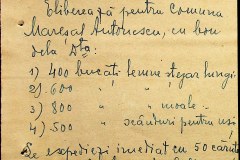 Eliberează pentru comuna
Mareșal Antonescu, cu bon
dela Dta:
1) 400 bucăți lemne stejar lungi
2) 600 " " "
3) 800 " " moale
4) 500 " scânduri pentru uși
Se expediezi imediat cu 50 căruțe